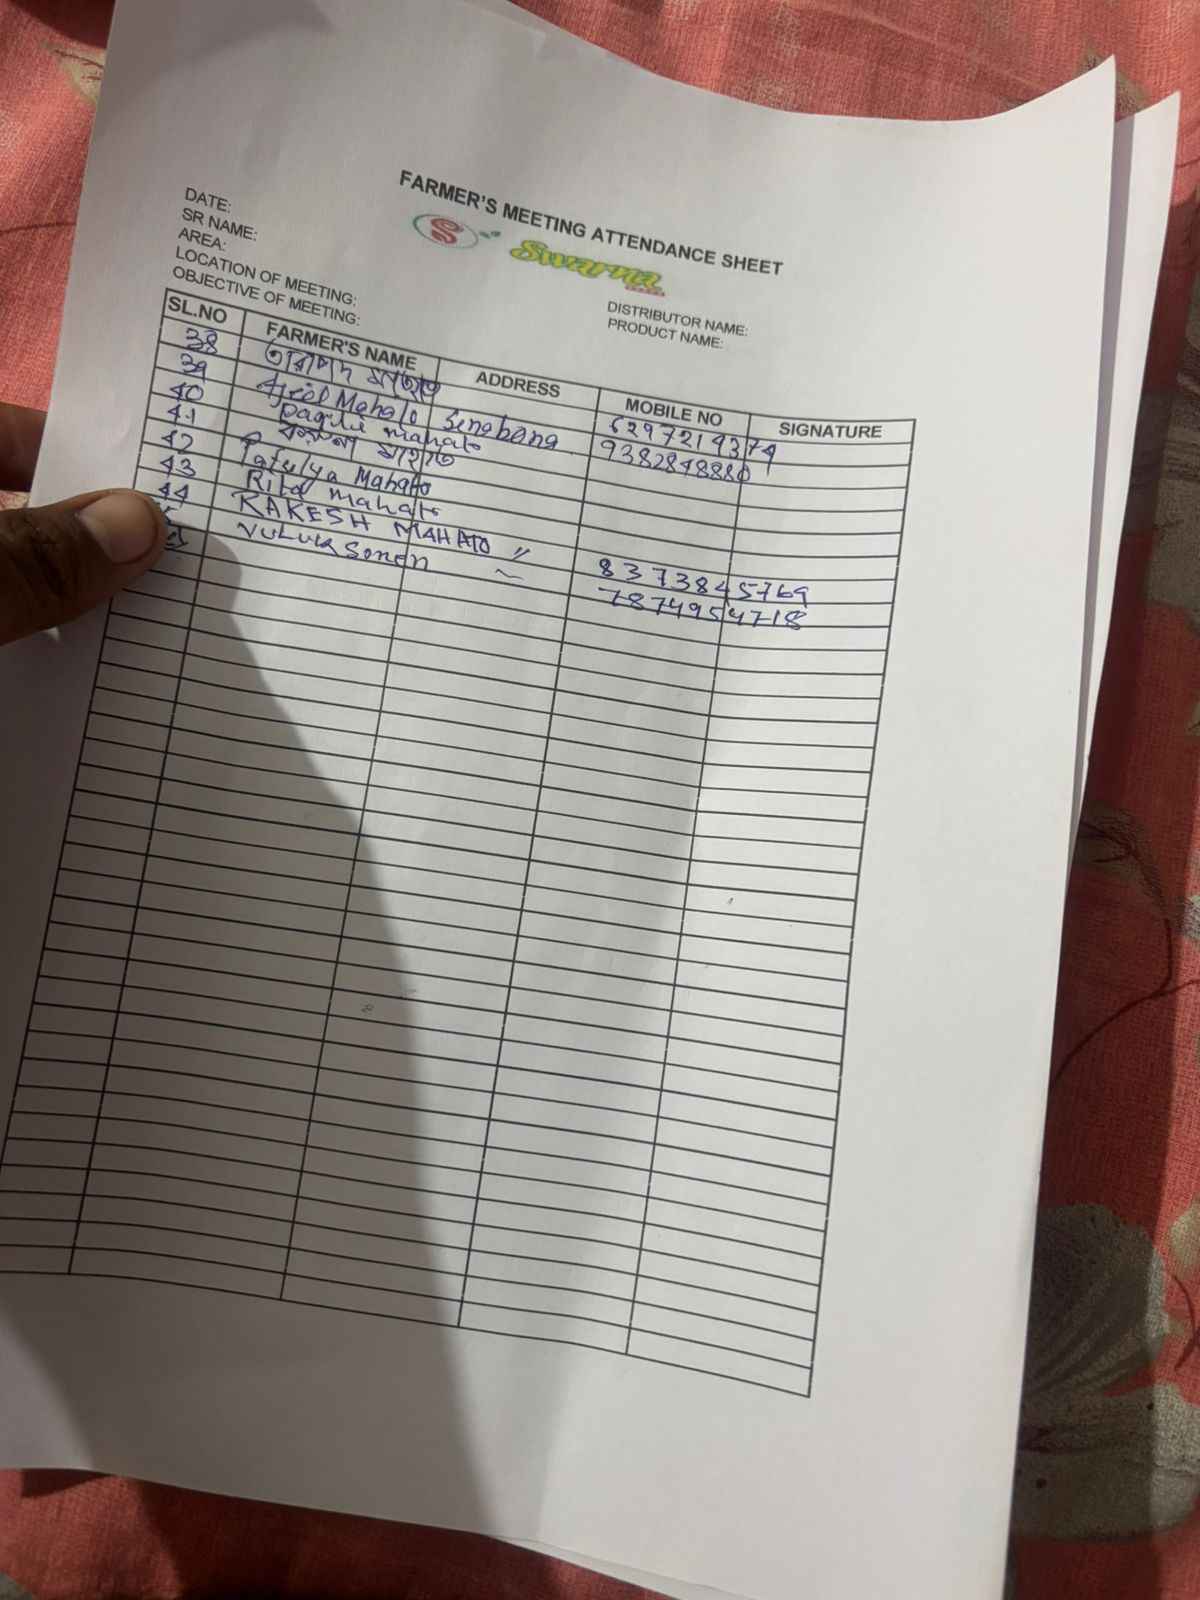 FARMER'S MEETING ATTENDANCE SHEET
S Swarna
DATE:
SR NAME:
AREA:
LOCATION OF MEETING:
OBJECTIVE OF MEETING:
DISTRIBUTOR NAME:
PRODUCT NAME:
SL.NO FARMER'S NAME ADDRESS MOBILE NO SIGNATURE
38 মাহাত
39 Mahato Senabana 6297219374
40 mahato 9382848880
41 মাহাত
42 Mahato
43 Rita mahato
44 RAKESH MAHATO " 8373845769
Soren 7874954718